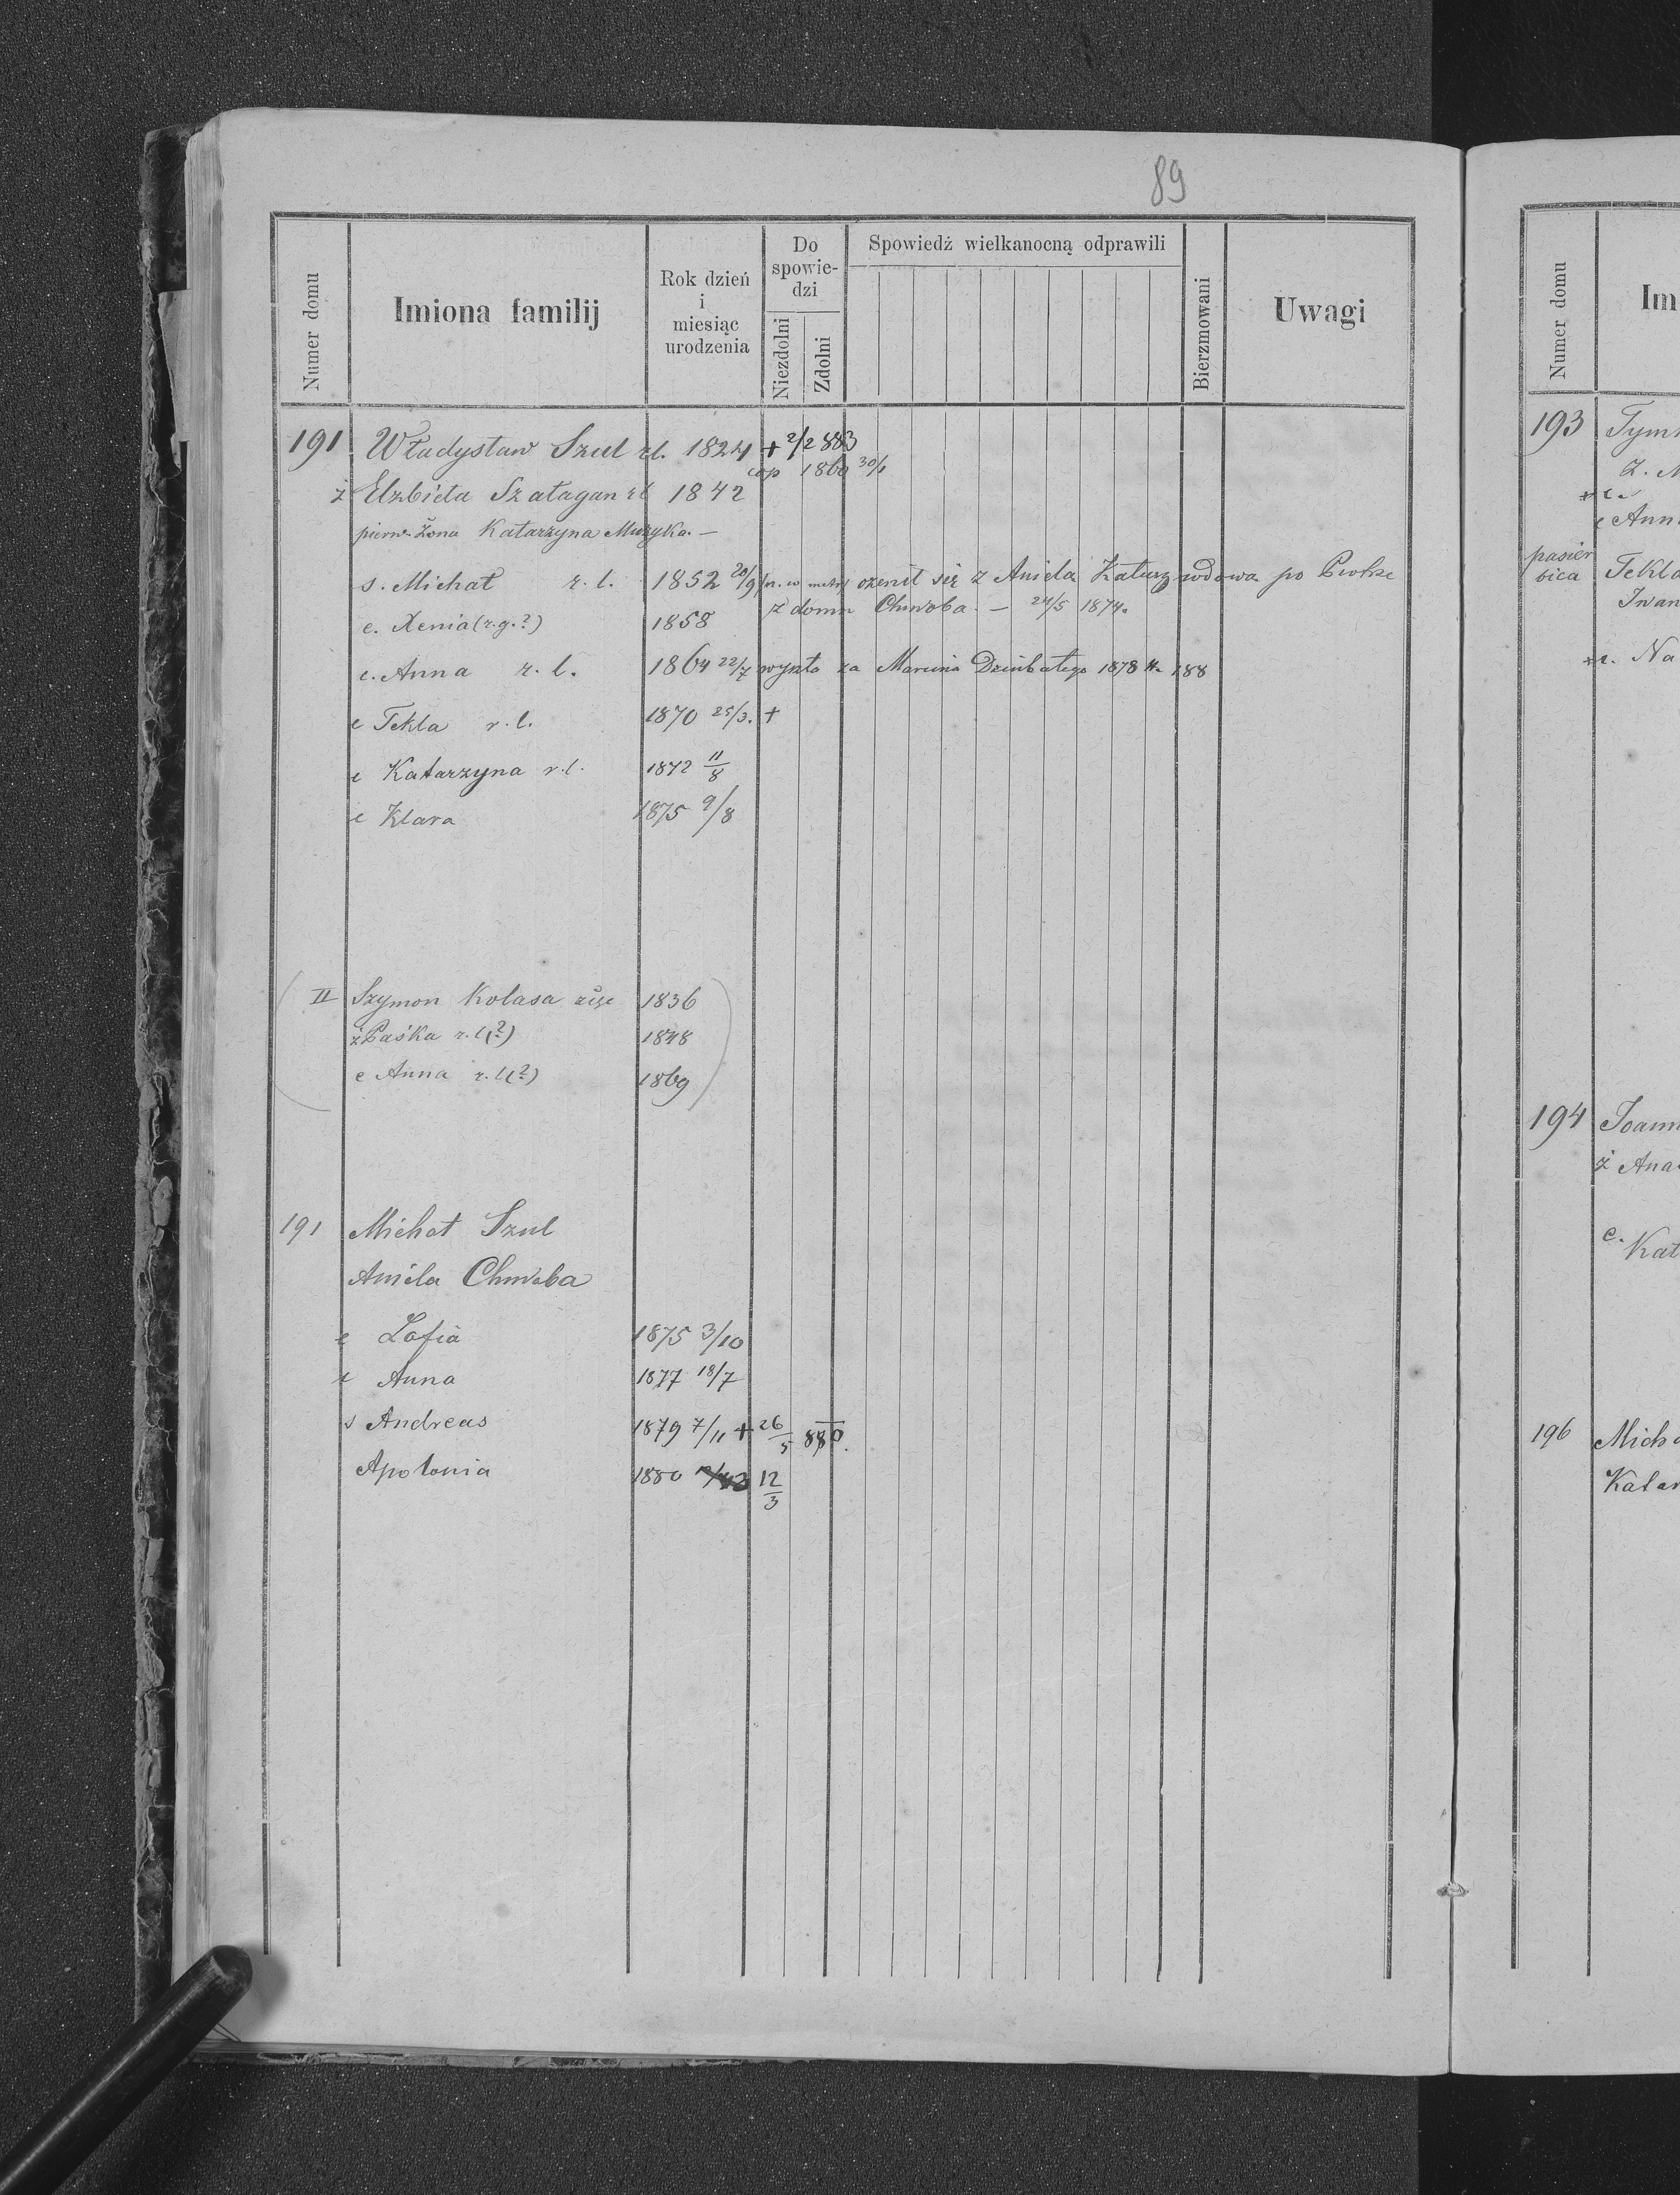 89
Numer domu
Imiona familij
Rok dzień
i
miesiąc
urodzenia
Do
spowie-
dzi
Niezdolni
Zdolni
Spowiedź wielkanocną odprawili
Bierzmowani
Uwagi
191 Władysław Szul r.l. 1824 + 2/2 883
cop 1860 30/1
ż Elżbieta Szałagan r.l. 1842
pierw. żona Katarzyna Muzyka. —
s. Michał r. l. 1852 20/9 (n. w metr) ożenił się z Aniela Kaługą wdową po Piotrze
z domu Chwoba. — 24/5 1874.
c. Xenia (r.g.?) 1858
c. Anna r. l. 1864 22/7 wyszła za Marcina Dziubatego 1878 N. 188
c Tekla r. l. 1870 25/3. +
c Katarzyna r. l. 1872 11/8
c Klara 1875 9/8
II Szymon Kolasa 1836
ż Paśka r. l (?) 1848
c Anna r. l (?) 1869
191 Michał Szul
Aniela Chwoba
c Zofia 1875 3/10
c Anna 1877 18/7
s Andreas 1879 7/11 + 26/5 880.
Apolonia 1880 12/3
Numer domu
Im
193 Tym
Ż. M
c Ann
pasier
bica Tekla
Iwan
c. Na
194 Joann
ż Ana
c. Kat
196 Mich
Katar